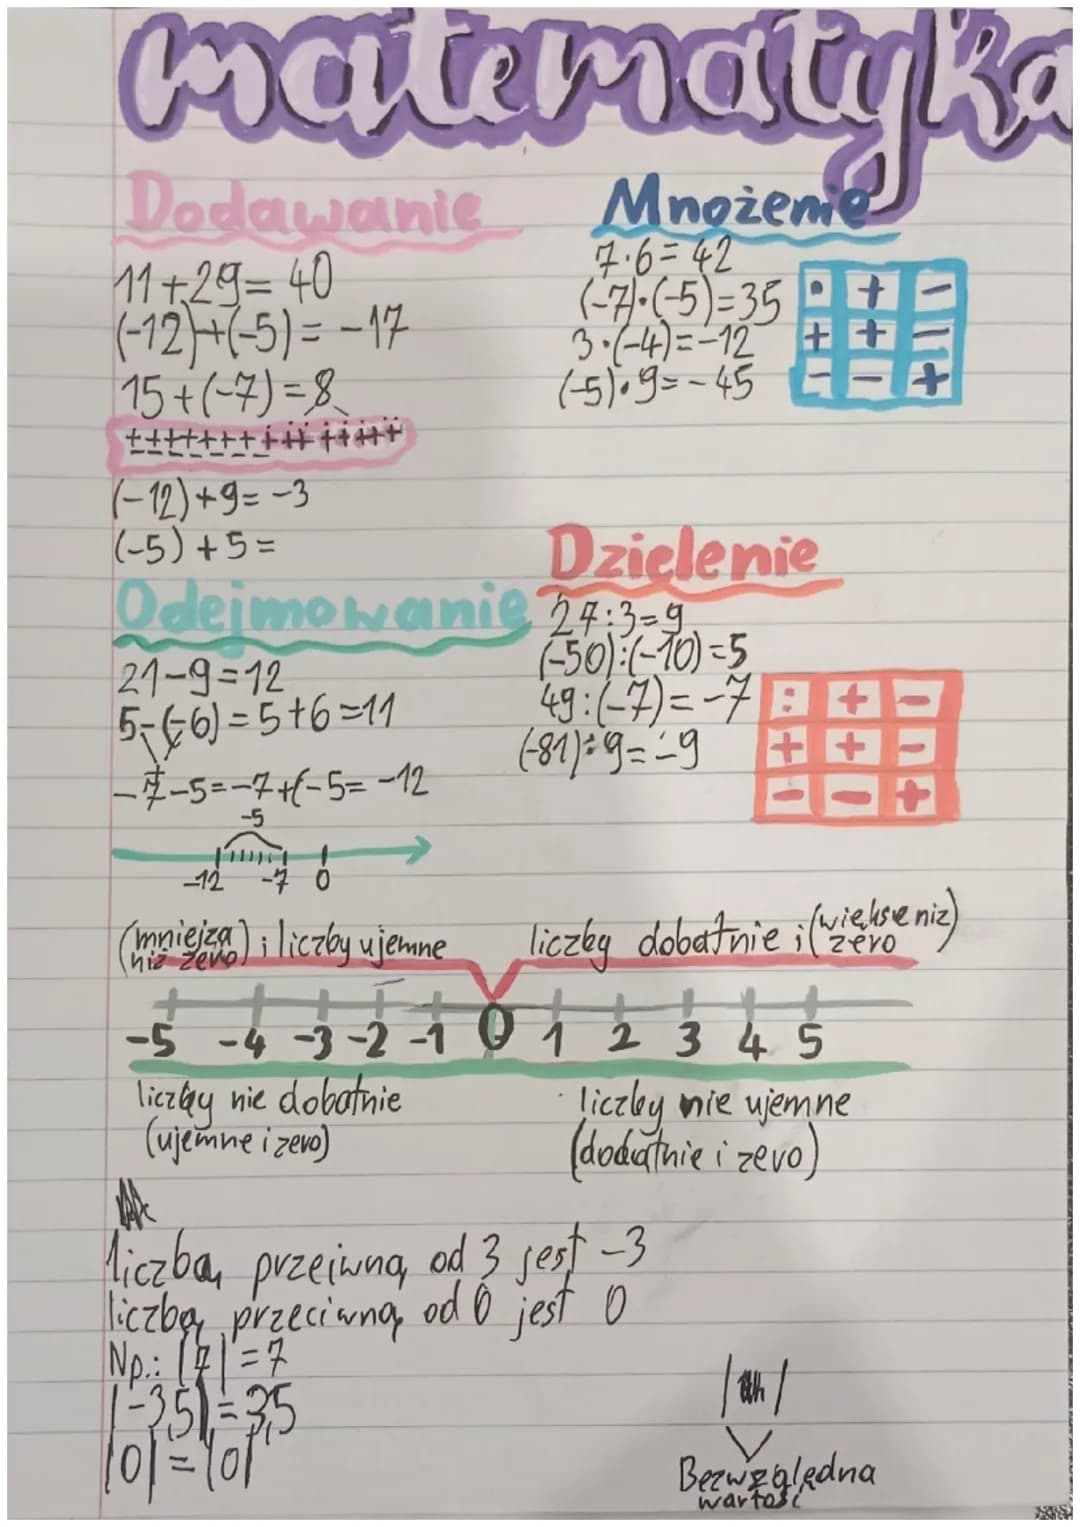 matematyka
Dodawanie
11+29= 40
(-12)+(-5)= -17
15+(-7)=8
(-12)+9= -3
(-5)+5=
Mnożenie
7·6= 42
(-7)·(-5)=35
3·(-4)=-12
(-5)·9=-45
· + -
+ + -
- - +
Odejmowanie
21-9=12
5-(-6)=5+6=11
+
-7-5=-7+(-5= -12
-5
-12 -7 0
Dzielenie
27:3=9
(-50):(-10)=5
49:(-7)= -7
(-81):9= -9
: + -
+ + -
- - +
(mniejza niż zero) i liczby ujemne
liczby dobatnie i (większe niz zero)
-5 -4 -3 -2 -1 0 1 2 3 4 5
liczby nie dobatnie
(ujemne i zero)
liczby nie ujemne
(dodatnie i zero)
liczbą przeiwną od 3 jest -3
liczbą przeciwną od 0 jest 0
Np.: |7|=7
|-3,5|=3,5
|0|=|0|
Bezwzględna
wartość